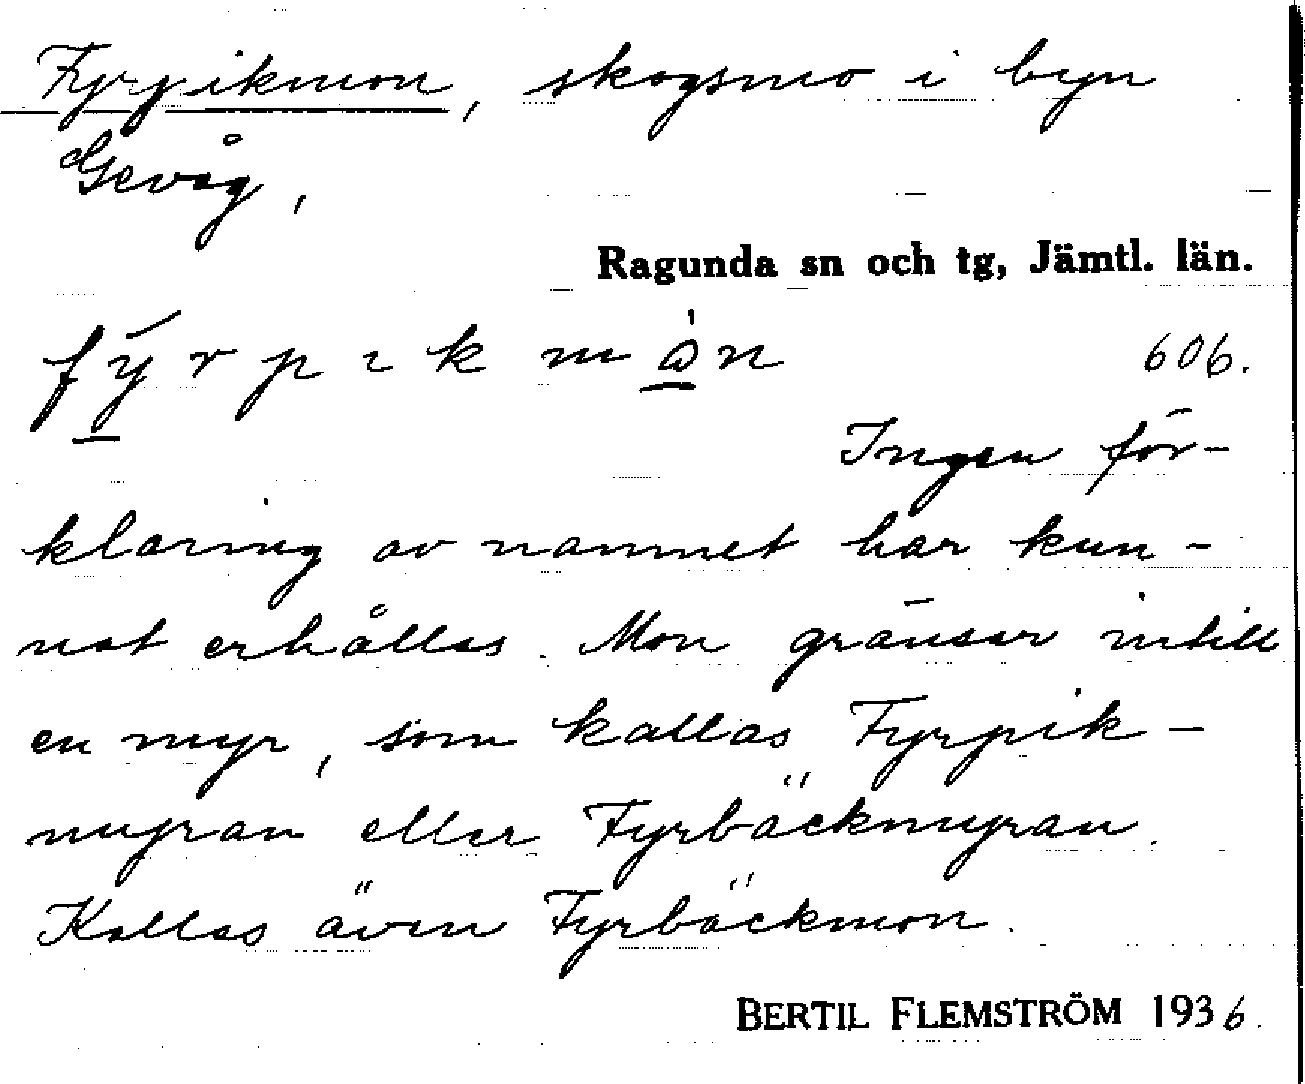 Fyrpikmon, skogsmo i byn
Gevåg,
Ragunda sn och tg, Jämtl. län.
fý̲rpık mò̲n
606.
Ingen för-
klaring av namnet har kun-
nat erhållas. Mon gränsar intill
en myr, som kallas Fyrpik-
myran eller Fyrbäckmyran.
Kallas även Fyrbäckmon.
BERTIL FLEMSTRÖM 1936.